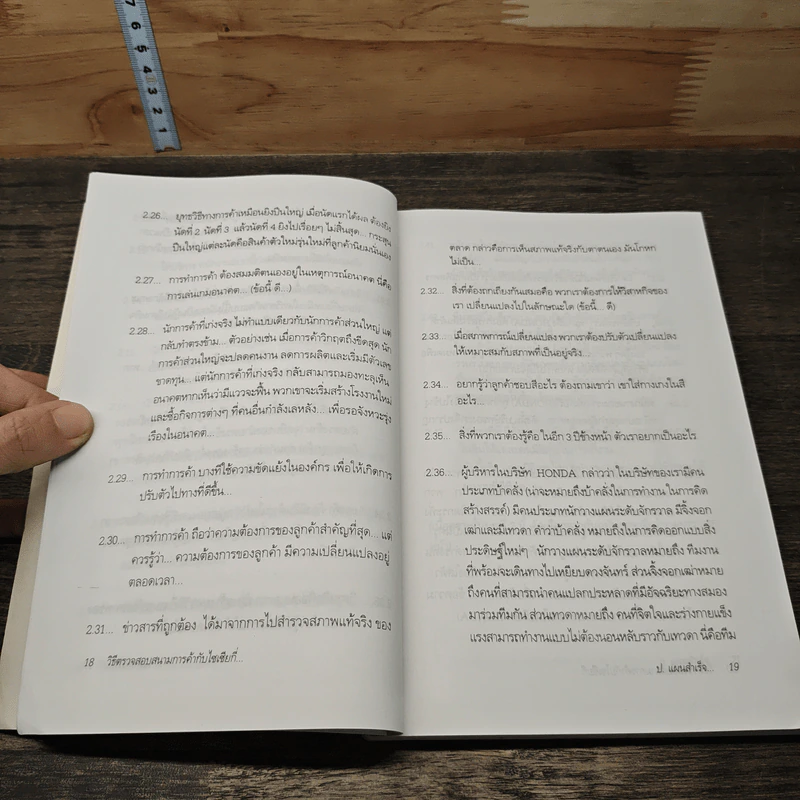 7 6 5 4 3 2 1
2.26... ยุทธวิธีทางการค้าเหมือนยิงปืนใหญ่ เมื่อนัดแรกได้ผล ต้องยิง
นัดที่ 2 นัดที่ 3 แล้วนัดที่ 4 ยิงไปเรื่อยๆ ไม่สิ้นสุด... กระสุน
ปืนใหญ่แต่ละนัดคือสินค้าตัวใหม่รุ่นใหม่ที่ลูกค้านิยมนั่นเอง
2.27... การทำการค้า ต้องสมมติตนเองอยู่ในเหตุการณ์อนาคต นี่คือ
การเล่นเกมอนาคต... (ข้อนี้ ดี...)
2.28... นักการค้าที่เก่งจริง ไม่ทำแบบเดียวกับนักการค้าส่วนใหญ่ แต่
กลับทำตรงข้าม... ตัวอย่างเช่น เมื่อการค้าวิกฤตถึงขีดสุด นัก
การค้าส่วนใหญ่จะปลดคนงาน ลดการผลิตและเริ่มมีตัวเลข
ขาดทุน... แต่นักการค้าที่เก่งจริง กลับสามารถมองทะลุเห็น
อนาคตหากเห็นว่ามีแววจะฟื้น พวกเขาจะเริ่มสร้างโรงงานใหม่
และซื้อกิจการต่างๆ ที่คนอื่นกำลังเลหลัง... เพื่อรอจังหวะรุ่ง
เรืองในอนาคต...
2.29... การทำการค้า บางทีใช้ความขัดแย้งในองค์กร เพื่อให้เกิดการ
ปรับตัวไปทางที่ดีขึ้น...
2.30... การทำการค้า ถือว่าความต้องการของลูกค้าสำคัญที่สุด... แต่
ควรรู้ว่า... ความต้องการของลูกค้า มีความเปลี่ยนแปลงอยู่
ตลอดเวลา...
2.31... ข่าวสารที่ถูกต้อง ได้มาจากการไปสำรวจสภาพแท้จริง ของ
18 วิธีตรวจสอบสนามการค้ากับไซเซียกี่...
ตลาด กล่าวคือการเห็นสภาพแท้จริงกับตาตนเอง มันโกหก
ไม่เป็น...
2.32... สิ่งที่ต้องถูกเถียงกันเสมอคือ พวกเราต้องการให้วิสาหกิจของ
เรา เปลี่ยนแปลงไปในลักษณะใด (ข้อนี้... ดี)
2.33... เมื่อสภาพการณ์เปลี่ยนแปลง พวกเราต้องปรับตัวเปลี่ยนแปลง
ให้เหมาะสมกับสภาพที่เป็นอยู่จริง...
2.34... อยากรู้ว่าลูกค้าชอบสีอะไร ต้องถามเขาว่า เขาใส่กางเกงในสี
อะไร...
2.35... สิ่งที่พวกเราต้องรู้คือ ในอีก 3 ปีข้างหน้า ตัวเราอยากเป็นอะไร
2.36... ผู้บริหารในบริษัท HONDA กล่าวว่า ในบริษัทของเรามีคน
ประเภทบ้าคลั่ง (น่าจะหมายถึงบ้าคลั่งในการทำงาน ในการคิด
สร้างสรรค์) มีคนประเภทนักวางแผนระดับจักรวาล มีจิ้งจอก
เฒ่าและมีเทวดา คำว่าบ้าคลั่ง หมายถึงในการคิดออกแบบสิ่ง
ประดิษฐ์ใหม่ๆ นักวางแผนระดับจักรวาลหมายถึง ทีมงาน
ที่พร้อมจะเดินทางไปเหยียบดวงจันทร์ ส่วนจิ้งจอกเฒ่าหมาย
ถึงคนที่สามารถนำคนแปลกประหลาดที่มีอัจฉริยะทางสมอง
มาร่วมทีมกัน ส่วนเทวดาหมายถึง คนที่จิตใจและร่างกายแข็ง
แรงสามารถทำงานแบบไม่ต้องนอนหลับราวกับเทวดา นี่คือทีม
ป. แผนสำเร็จ... 19